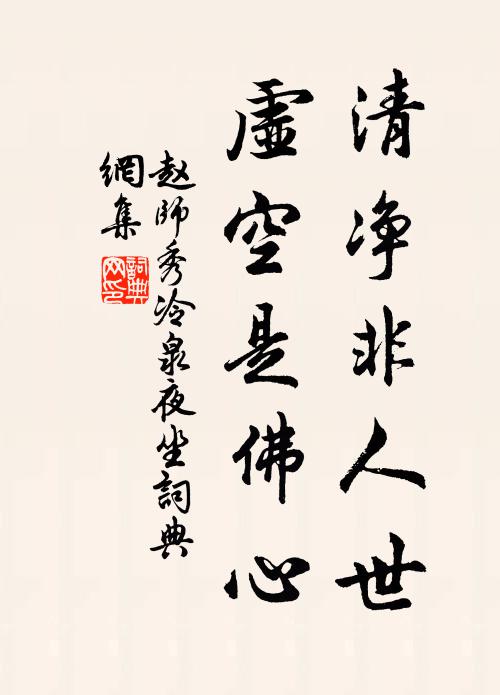 清净非人世
虚空是佛心
赵師秀冷泉夜坐詞典
網集
詞典
网印